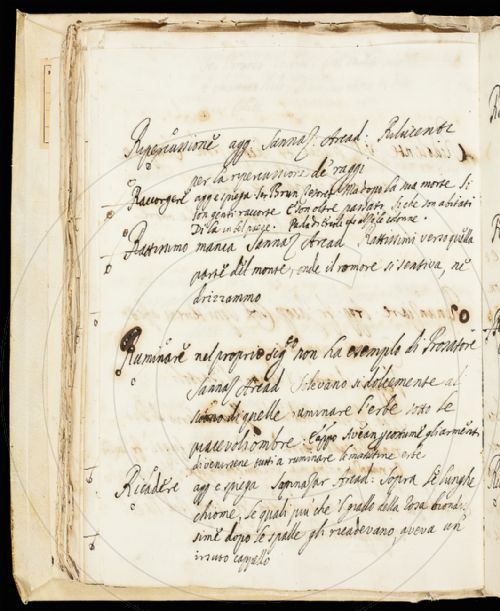 Ripercussione agg: Sannaz: Arcad: Rilucente
per la ripercussione de raggi
Raccorgere agg e spiega Ser Brun Tesoret Ma dopo la sua morte Si
son genti raccorte E son oltre passati Si che son abitati
Di là in bel paese.
Rattissimo manca Sannaz Arcad Rattissimi verso quella
parte del monte, onde il romore si sentiva, ne
drizzammo
Ruminare nel proprio sig.to non ha esempio di Prosatore
Sannaz Arcad Si levano sì dolcemente al
suono di quelle ruminare l'erbe sotto le
piacevoli ombre: E appo Avean per costume gli armenti
di venirsene tutti a ruminare le matutine erbe
Ricadere agg e spiega Sannazar Arcad: Sopra le lunghe
chiome, le quali più che 'l giallo della rosa biondis
sime dopo le spalle gli ricadevano, aveva un
irsuto cappello